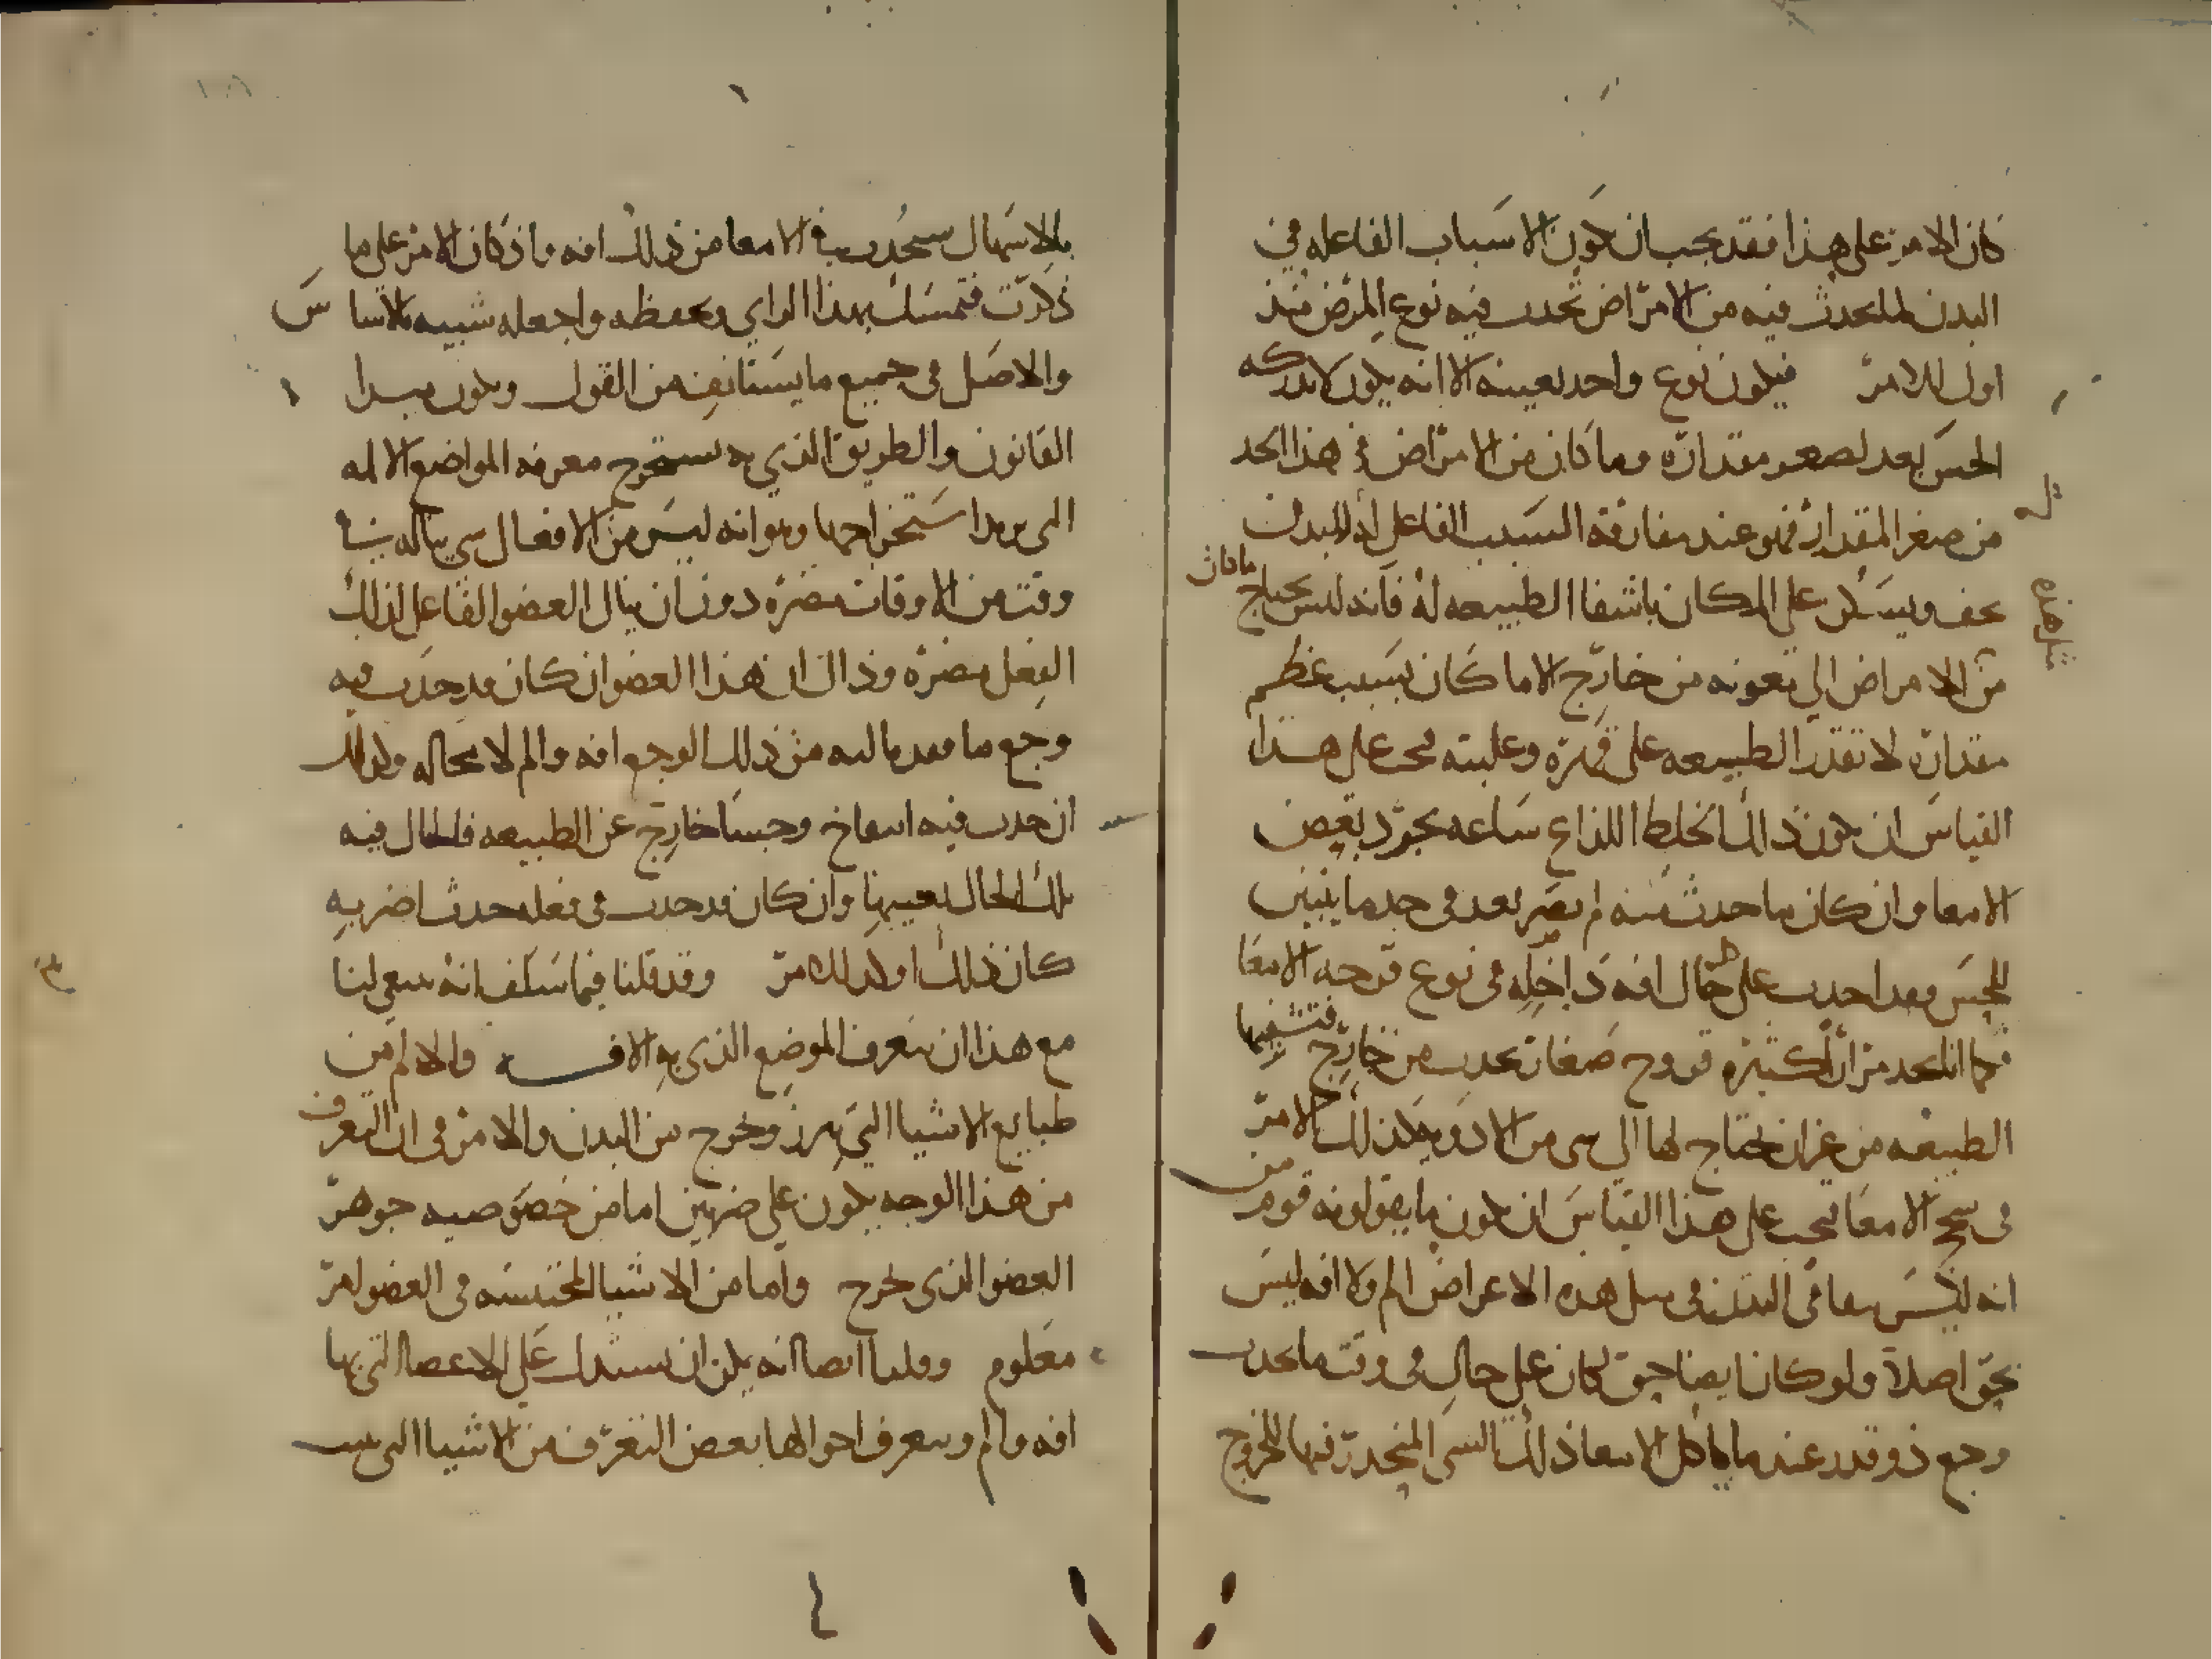 كان الامر على هذا فقد يجب ان تكون الاسباب الفاعله في
البدن لما يحدث فيه من الامراض تحدث فيه نوع المرض منذ
اول الامر فيكون نوع واحد بعينه الا انه يكون لا يدركه
الحس بعد لصغر مقداره وما كان من الامراض في هذا الحد
من صغر المقدار فهو عند مفارقة السبب الفاعل له البدن
يخف ويسكن على المكان باشفا الطبيعه له فانه ليس يحتاج ما كان
من الامراض الى معونه من خارج الا ما كان بسبب عظم
مقداره لا تقدر الطبيعه على قهره وغلبته فيجب على هذا
القياس ان يكون ذلك الخلط اللذاع ساعه يجرد بعض
الامعا وان كان ما حدث منه لم يصر بعد في حد ما يتبين
للحس فقد احدث على حال افه داخله في نوع قرحه الامعا
كما انا نجد مرارا كثيره قروح صغار تحدث من خارج فتشفيها
الطبيعه من غير ان تحتاج لها الى شي من الادويه كذلك الامر
في سحج الامعا فيجب على هذا القياس ان يكون ما يقولونه قوم من
انه ليس معا في البدن في مثل هذه الاعراض الم ولا افه ليس
بحق اصلا ولو كان ايضا حق لكان على حال في وقت ما يحدث
وجع ذو قدر عندما ياكل الامعا ذلك الشي المنحدر فيها للخروج
بالاسهال سيحدث في الامعا من ذلك افه واذ كان الامر على ما
ذكرت فتمسك بهذا الراي وتحفظه واجعله شبيه بالاساس
والاصل في جميع ما يستانف من القول ويكون مبدا
القانون والطريق الذي به يستخرج معرفه المواضع الالمه
التي يريد استخراجها وهو انه ليس من الافعال شي يناله في
وقت من الاوقات مضره دون ان ينال العضو الفاعل لذلك
الفعل مضره وذلك ان هذا العضو ان كان قد حدث فيه
وجع ما فقد ناله من ذلك الوجع افه والم لا محاله وكذلك
ان حدث فيه انتفاخ وجسا خارج عن الطبيعه فالحال فيه
تلك الحال بعينها وان كان قد حدث في فعله حدث اضر به
كان ذلك اول الامر وقد قلنا فيما سلف انه ينبغي لنا
مع هذا ان نتعرف الموضع الذي به الافه والالم من
طبايع الاشيا التي تبرز وتخرج من البدن والامر في ان التعرف
من هذا الوجه يكون على ضربين اما من خصوصيه جوهر
العضو الذي يخرج واما من الاشيا المحتبسه في العضو امر
معلوم وقلنا ايضا انه يمكن ان يستدل على الاعضا التي بها
افه والم ويتعرف احوالها بعض التعرف من الاشيا التي